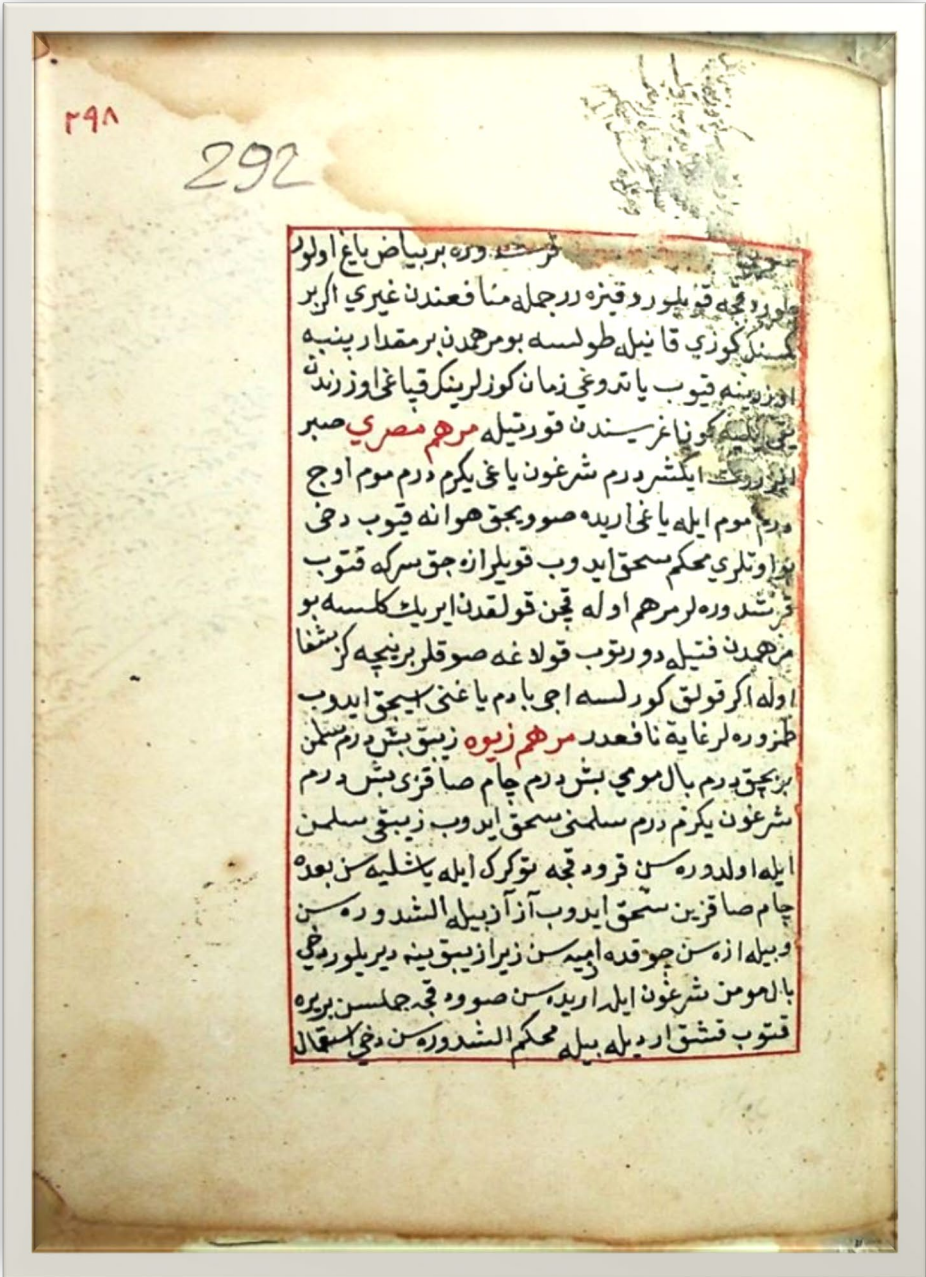 ۲۹۸
292
وره بر بياض ياغ اولور
قويلور وقيزه رر جمله منافعندن غيري اكر بر
كوزي قانيله طولسه بو مرهمدن بر مقدار پنبه
اوزرينه قيوب ياتدوغي زمان كوزلرينك قپاغي اوزرندن
كوز اغريسندن قورتيله مرهم مصري صبر
ايكشر درم شرغون ياغي يكرم درم موم اوج
درم موم ايله ياغي اريده صوويجق هوانه قيوب دخي
بو اوتلري محكم سحق ايدوب قويلر ازه جق سركه قتوب
قرشدوره لر مرهم اوله قچن قولقدن ايريك كلسه بو
مرهمدن فتيله دورتوب قولاغه صوقلر برنيچه كز شفا
اوله اكر قولق كورلسه اجي بادم ياغني اسيجق ايدوب
طمزوره لر غاية نافعدر مرهم زيوه زيبق بش درم سلمن
بر بچق درم بال مومي بش درم چام صاقزي بش درم
شرغون يكرم درم سلمني سحق ايدوب زيبقي سلمن
ايله اولدوره سن قرودقجه توكرك ايله ياشليه سن بعده
چام صاقزين سحق ايدوب آز آز بيله الشدوره سن
وبيله ازه سن چوقده اميه سن زيرا زيبق ينه ديريلور دخي
بال مومن شرغون ايله اريده سن صوودقجه جملسن بر يره
قتوب قشق ارديله بيله محكم الشدوره سن دخي استعمال